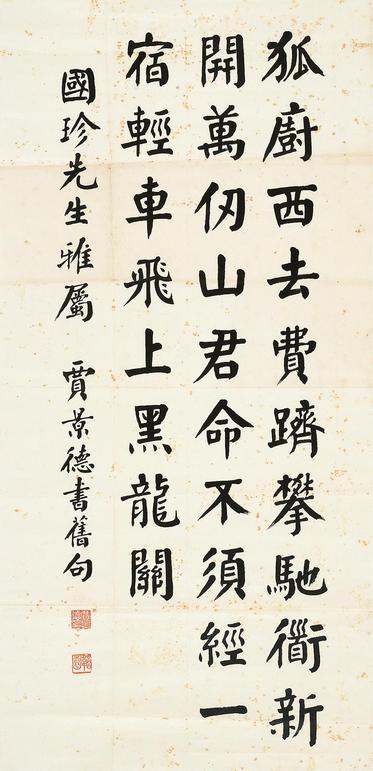 狐廚西去費躋攀馳衢新
開萬仞山君命不須經一
宿輕車飛上黑龍關
國珍先生雅屬 賈景德書舊句